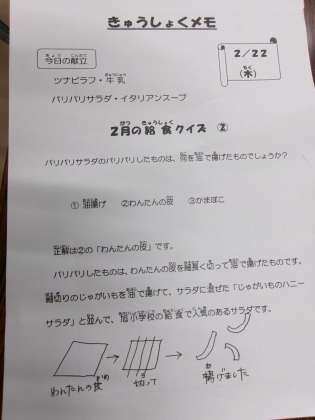 きゅうしょくメモ
今日の献立
2/22
(木)
ツナピラフ・牛乳
パリパリサラダ・イタリアンスープ
2月の給食クイズ ②
パリパリサラダのパリパリしたものは、何を油で揚げたものでしょうか?
①油揚げ ②わんたんの皮 ③かまぼこ
正解は②の「わんたんの皮」です。
パリパリしたものは、わんたんの皮を細長く切って油で揚げたものです。
細切りのじゃがいもを油で揚げて、サラダに混ぜた「じゃがいものハニー
サラダ」と並んで、小学校の給食で人気のあるサラダです。
わんたんの皮
切って
揚げました